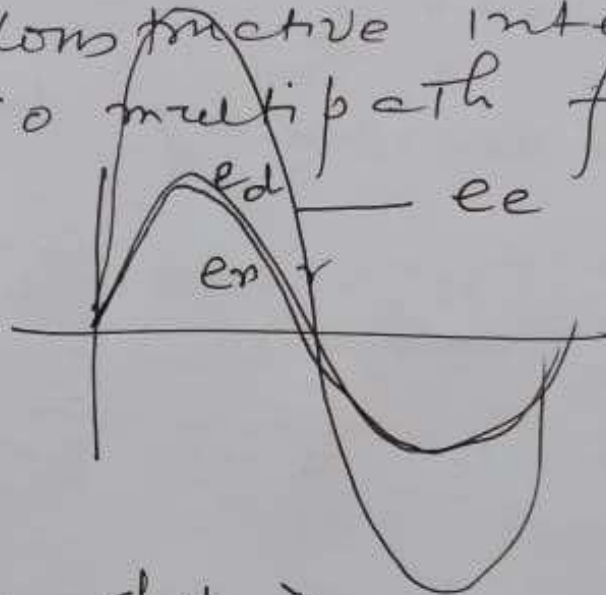 Constructive Inte
to multipath f
ed
ee
er